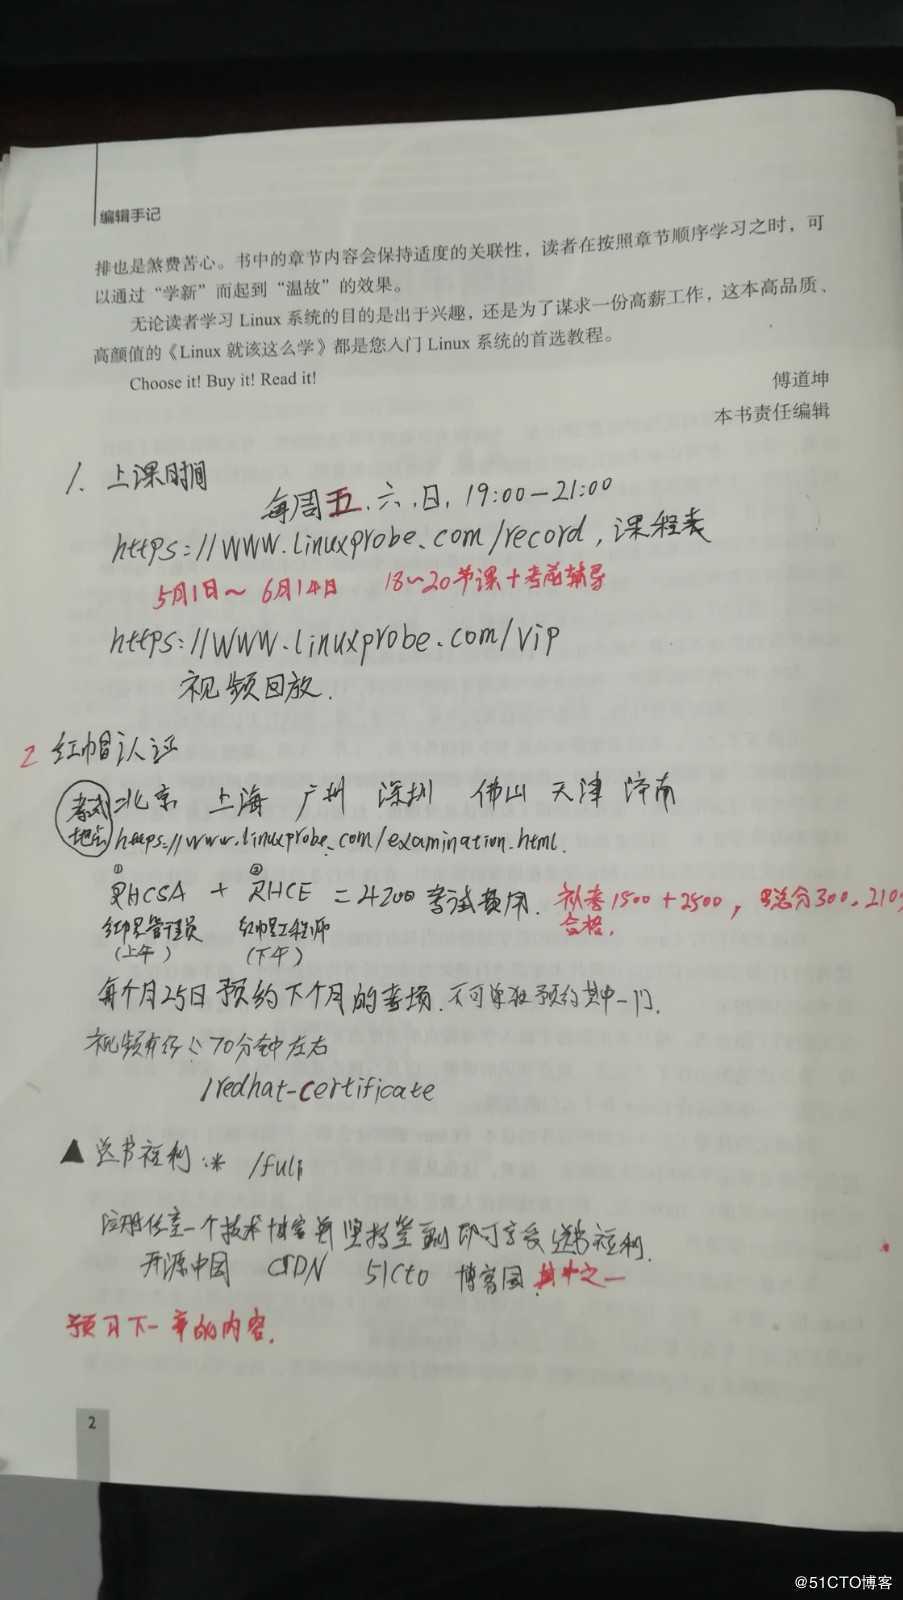 编辑手记
排也是煞费苦心。书中的章节内容会保持适度的关联性，读者在按照章节顺序学习之时，可
以通过“学新”而起到“温故”的效果。
无论读者学习 Linux 系统的目的是出于兴趣，还是为了谋求一份高薪工作，这本高品质、
高颜值的《Linux 就该这么学》都是您入门 Linux 系统的首选教程。
Choose it! Buy it! Read it!
傅道坤
本书责任编辑
1. 上课时间
每周五、六、日, 19:00-21:00
https://www.linuxprobe.com/record, 课程表
5月1日～6月14日 18～20节课+考前辅导
https://www.linuxprobe.com/vip
视频回放.
2 红帽认证
考试地点: 北京 上海 广州 深圳 佛山 天津 济南
https://www.linuxprobe.com/examination.html.
① RHCSA + ② RHCE = 4200 考试费用. 补考1500+2500, 总分300, 210
合格.
红帽管理员 红帽工程师
(上午) (下午)
每个月25日预约下个月的考场. 不可单独预约其中一门.
视频 70分钟左右
/redhat-certificate
▲ 送书福利: /fuli
注册任意一个技术博客并坚持签到即可享受送书福利.
开源中国 CSDN 51cto 博客园 其中之一
预习下一章的内容.
2
@51CTO博客